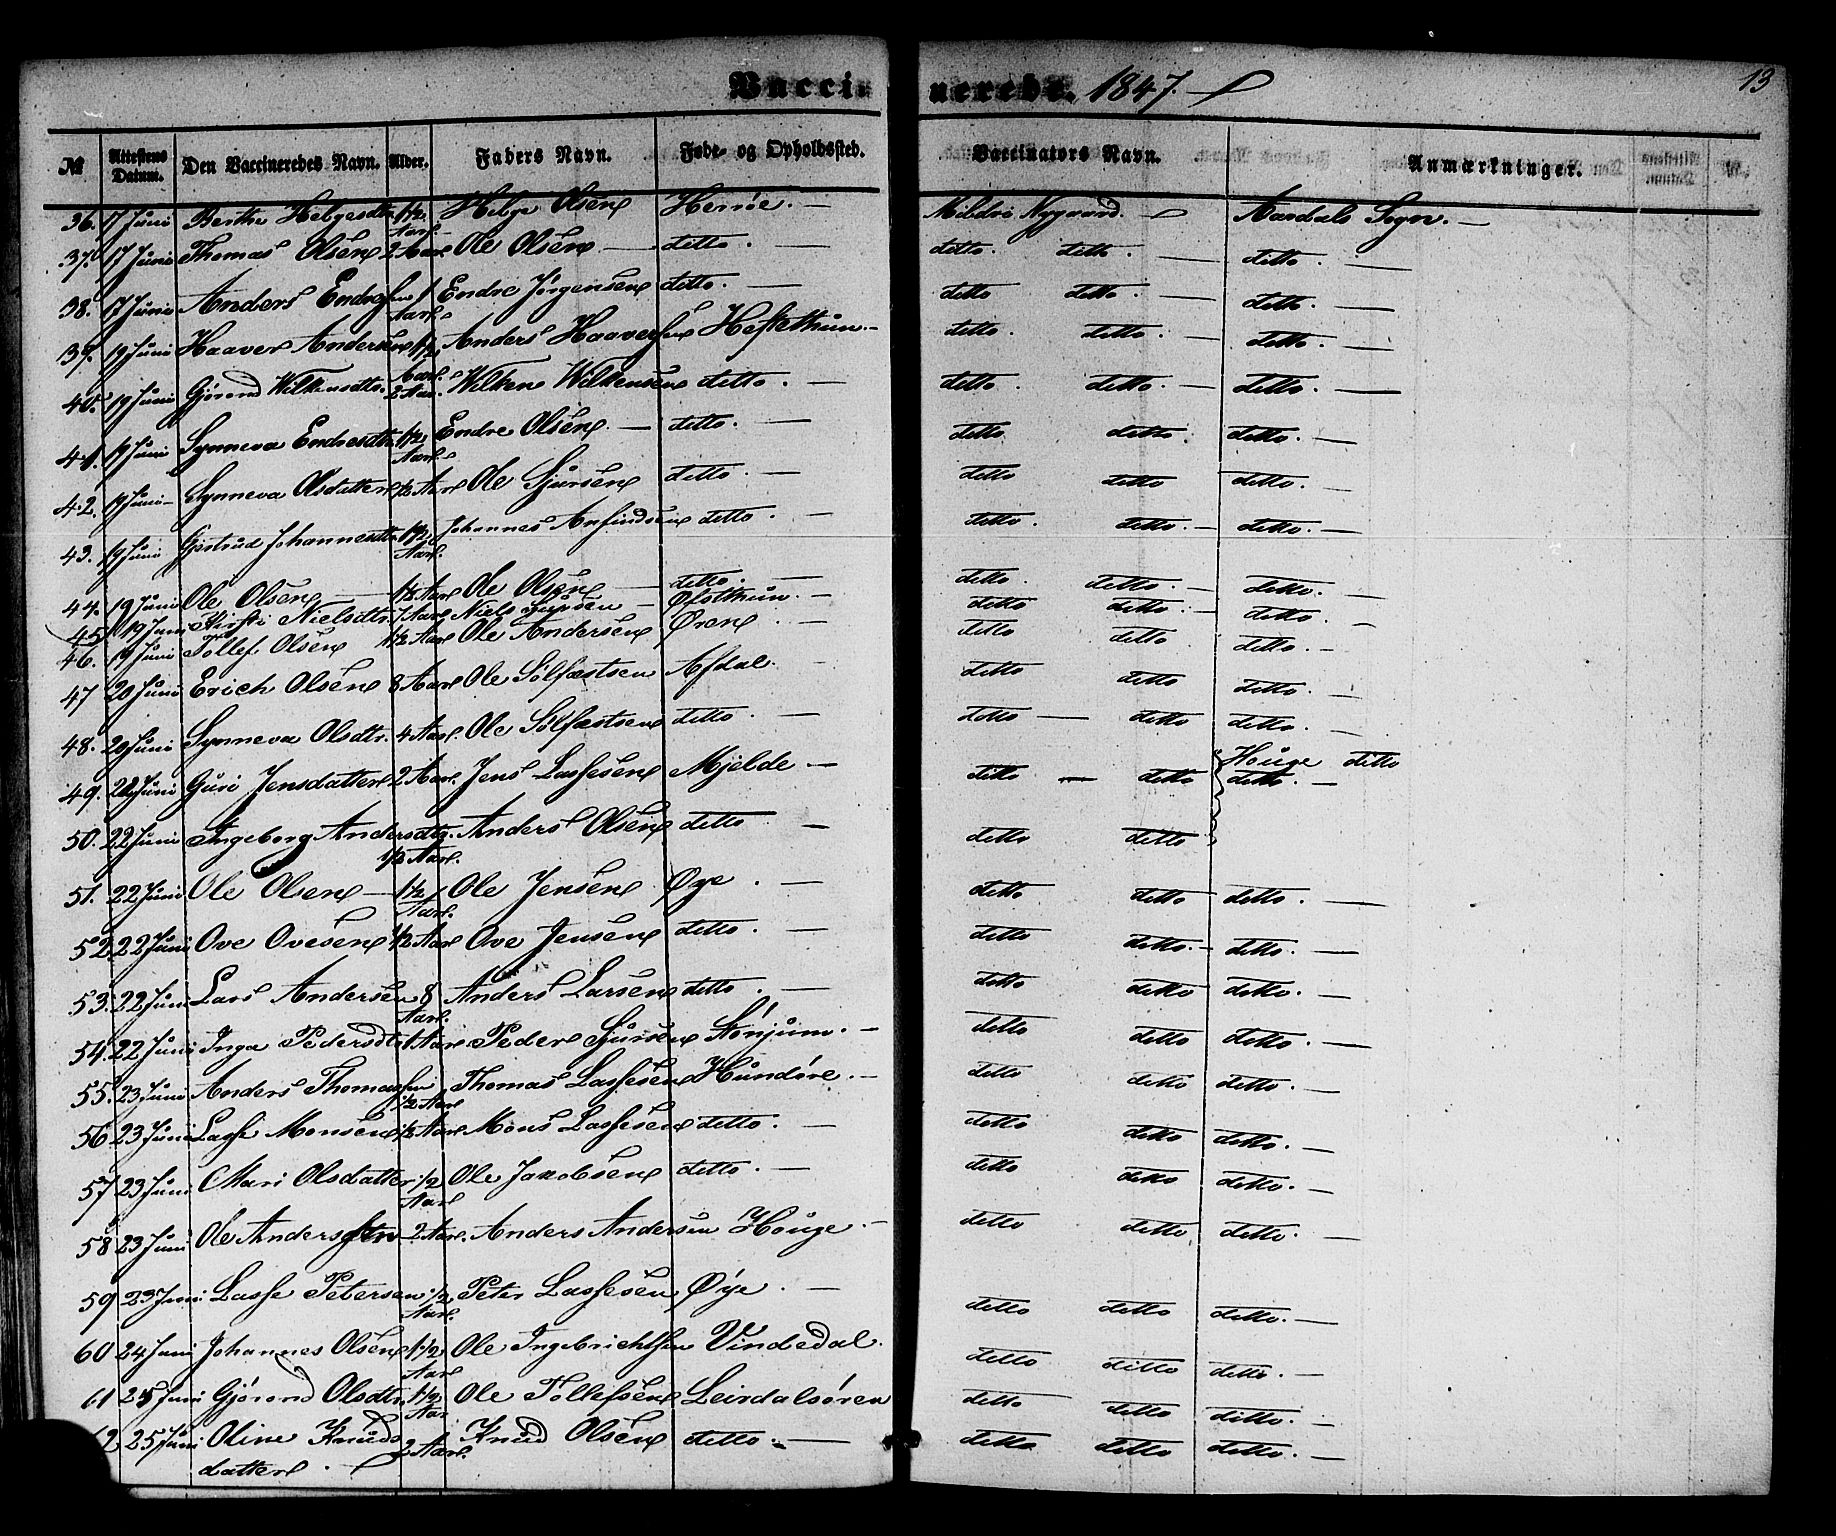 Vaccinerede. 1847.
13
No Attestens Datum. Den Vaccineredes Navn. Alder. Faders Navn. Føde- og Opholdssted. Vaccinators Navn. Anmærkninger.
36. 17 Juni Berthe Helgesdtr 1½ Aar Helge Olsen Herøe. — Mildri Nygaard. — Aardals Sogn. —
37. 17 Juni Thomas Olsen 2 Aar Ole Olsen — ditto. — ditto ditto. — ditto. —
38. 17 Juni Anders Endresen 1 Aar Endre Jørgensen ditto. — ditto ditto. — ditto. —
39. 19 Juni Haaver Andersen 1½ Aar Anders Haaversen Hestethun. — ditto. ditto. — ditto. —
40. 19 Juni Gjørond Wilkensdtr. 2 Aar. Wilken Wilkensen ditto. — ditto. ditto. — ditto. —
41. 19 Juni Synneva Endresdtr 1½ Aar Endre Olsen. — ditto. — ditto ditto. ditto. —
42. 19 Juni Synneva Olsdatter ½ Aar Ole Sjursen ditto. — ditto ditto ditto. —
43. 19 Juni Gjertrud Johannesdtr 1½ Aar. Johannes Anfindsen ditto. — ditto. ditto. — ditto. —
44. 19 Juni Ole Olsen — ½ Aar Ole Olsen — ditto. — ditto. ditto. — ditto. —
45 19 Juni Kirsti Nielsdtr. 7 Aar Niels — ditto ditto. — ditto. —
46. 19 Juni Tollef Olsen 1½ Aar Ole Andersen Øren. — ditto ditto ditto. —
47 20 Juni Erich Olsen 8 Aar Ole Sølfæstsen Afdal. — ditto ditto ditto. —
48. 20 Juni Synneva Olsdtr. 4 Aar. Ole Sølfæstsen ditto. — ditto — ditto ditto. —
49. 22 Juni Guri Jensdatter 2 Aar. Jens Lassesen Mjelde — ditto — ditto Houge ditto
ditto. —
50. 22 Juni Ingeborg Andersdtr. ½ Aar. Anders Olsen ditto — ditto ditto
51. 22 Juni Ole Olsen — 1½ Aar. Ole Jensen Øye. — ditto ditto ditto. —
52. 22 Juni Ove Ovesen ½ Aar Ove Jensen ditto. — ditto ditto. — ditto. —
53. 22 Juni Lars Andersen 8 Aar. Anders Larsen ditto. — ditto ditto ditto. —
54. 22 Juni Inga Pedersdtr 1 Aar Peder Sjursen Stønjum. — ditto ditto ditto. —
55. 23 Juni Anders Thomassen ½ Aar Thomas Lassesen Hundøre. — ditto ditto ditto. —
56 23 Juni Lasse Monsen ½ Aar Mons Lassesen ditto. — ditto ditto ditto. —
57 23 Juni Mari Olsdatter ½ Aar Ole Jakobsen ditto. — ditto ditto ditto. —
58 23 Juni Ole Andersen — 2 Aar. Anders Andersen Houge. — ditto ditto ditto. —
59 23 Juni Lasse Petersen ½ Aar. Peter Lassesen Øye. — ditto ditto ditto. —
60 24 Juni Johannes Olsen 1½ Aar Ole Ingebrichtsen Vindedal. ditto ditto ditto. —
61 25 Juni Gjørond Olsdtr. 1½ Aar Ole Tollefsen Leirdalsøren ditto ditto ditto. —
62 25 Juni Oline Knuds 2 Aar. Knud Olsen ditto. — ditto ditto ditto. —
datter. —